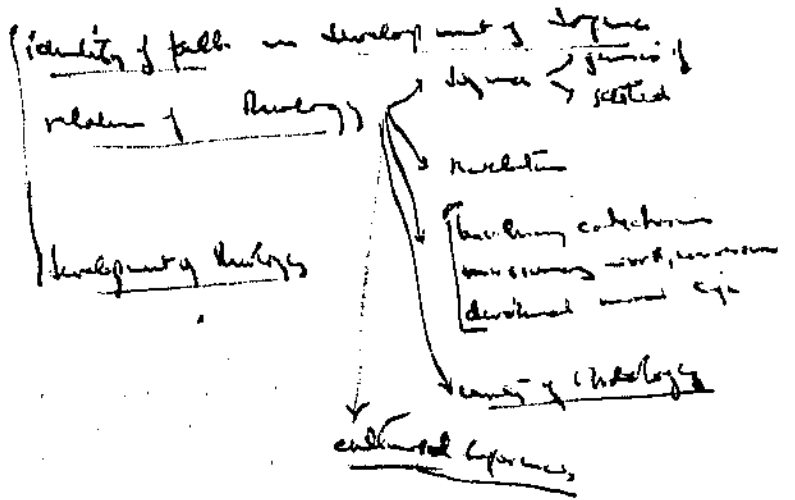 identity of faith in development of dogma
relation of theology
dogma
genesis of
stated
revelation
preaching catechisms
missionary work, conversions
devotional moral life
variety of theology
development of theology
cultural